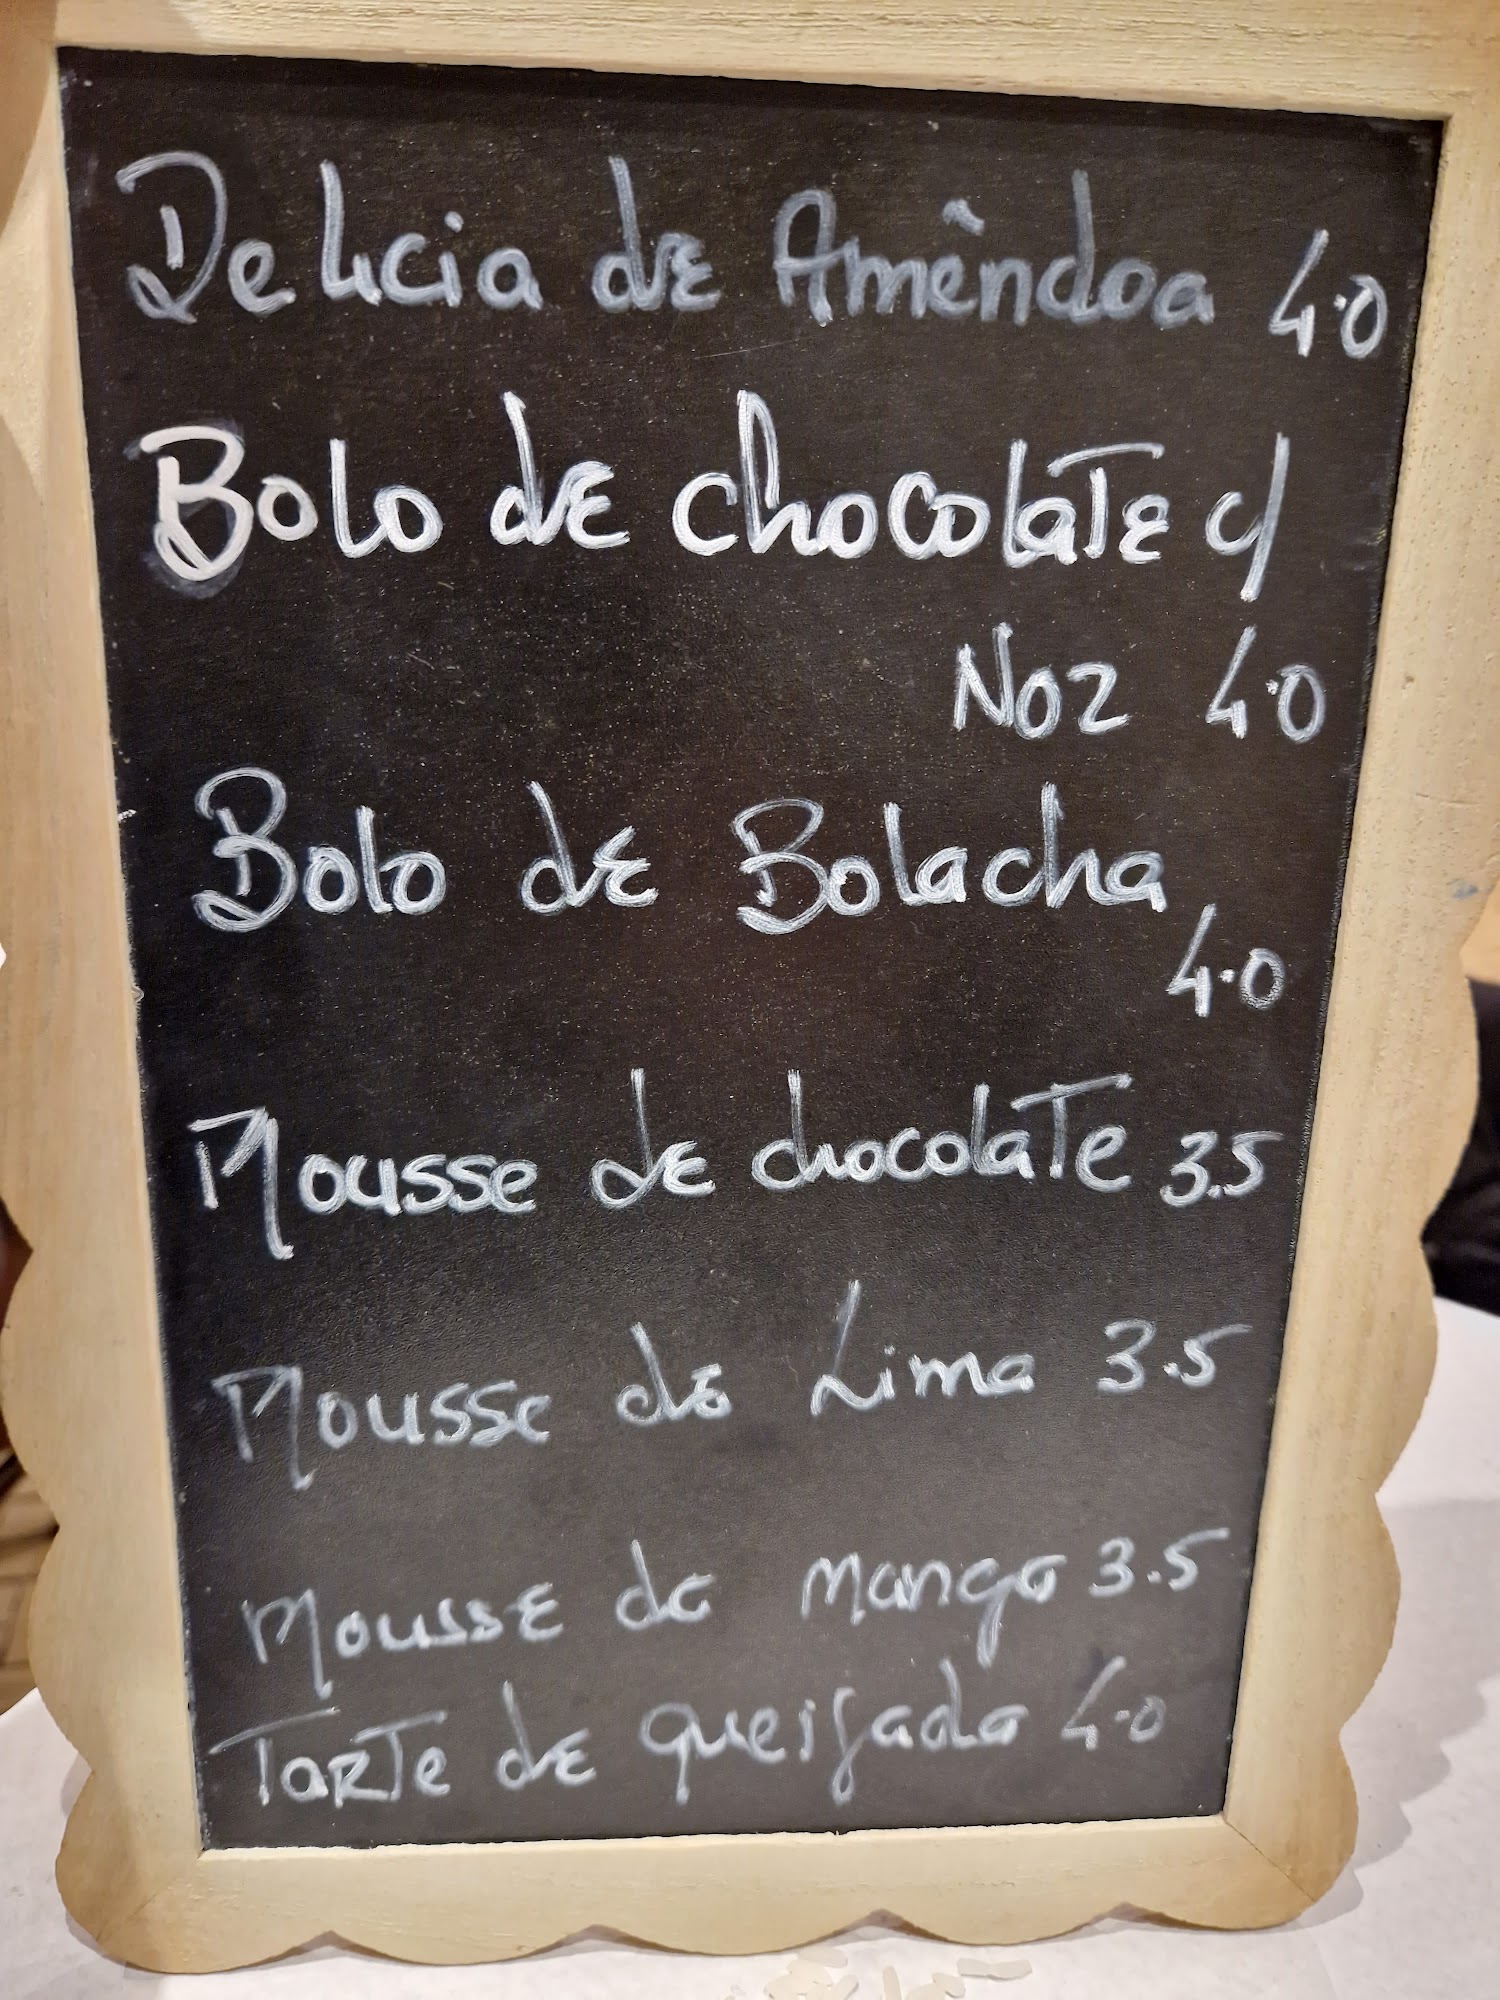 Delicia de Amêndoa 4.0
Bolo de chocolate c/
Noz 4.0
Bolo de Bolacha
4.0
Mousse de chocolate 3.5
Mousse de Lima 3.5
Mousse de mango 3.5
Tarte de queijada 4.0